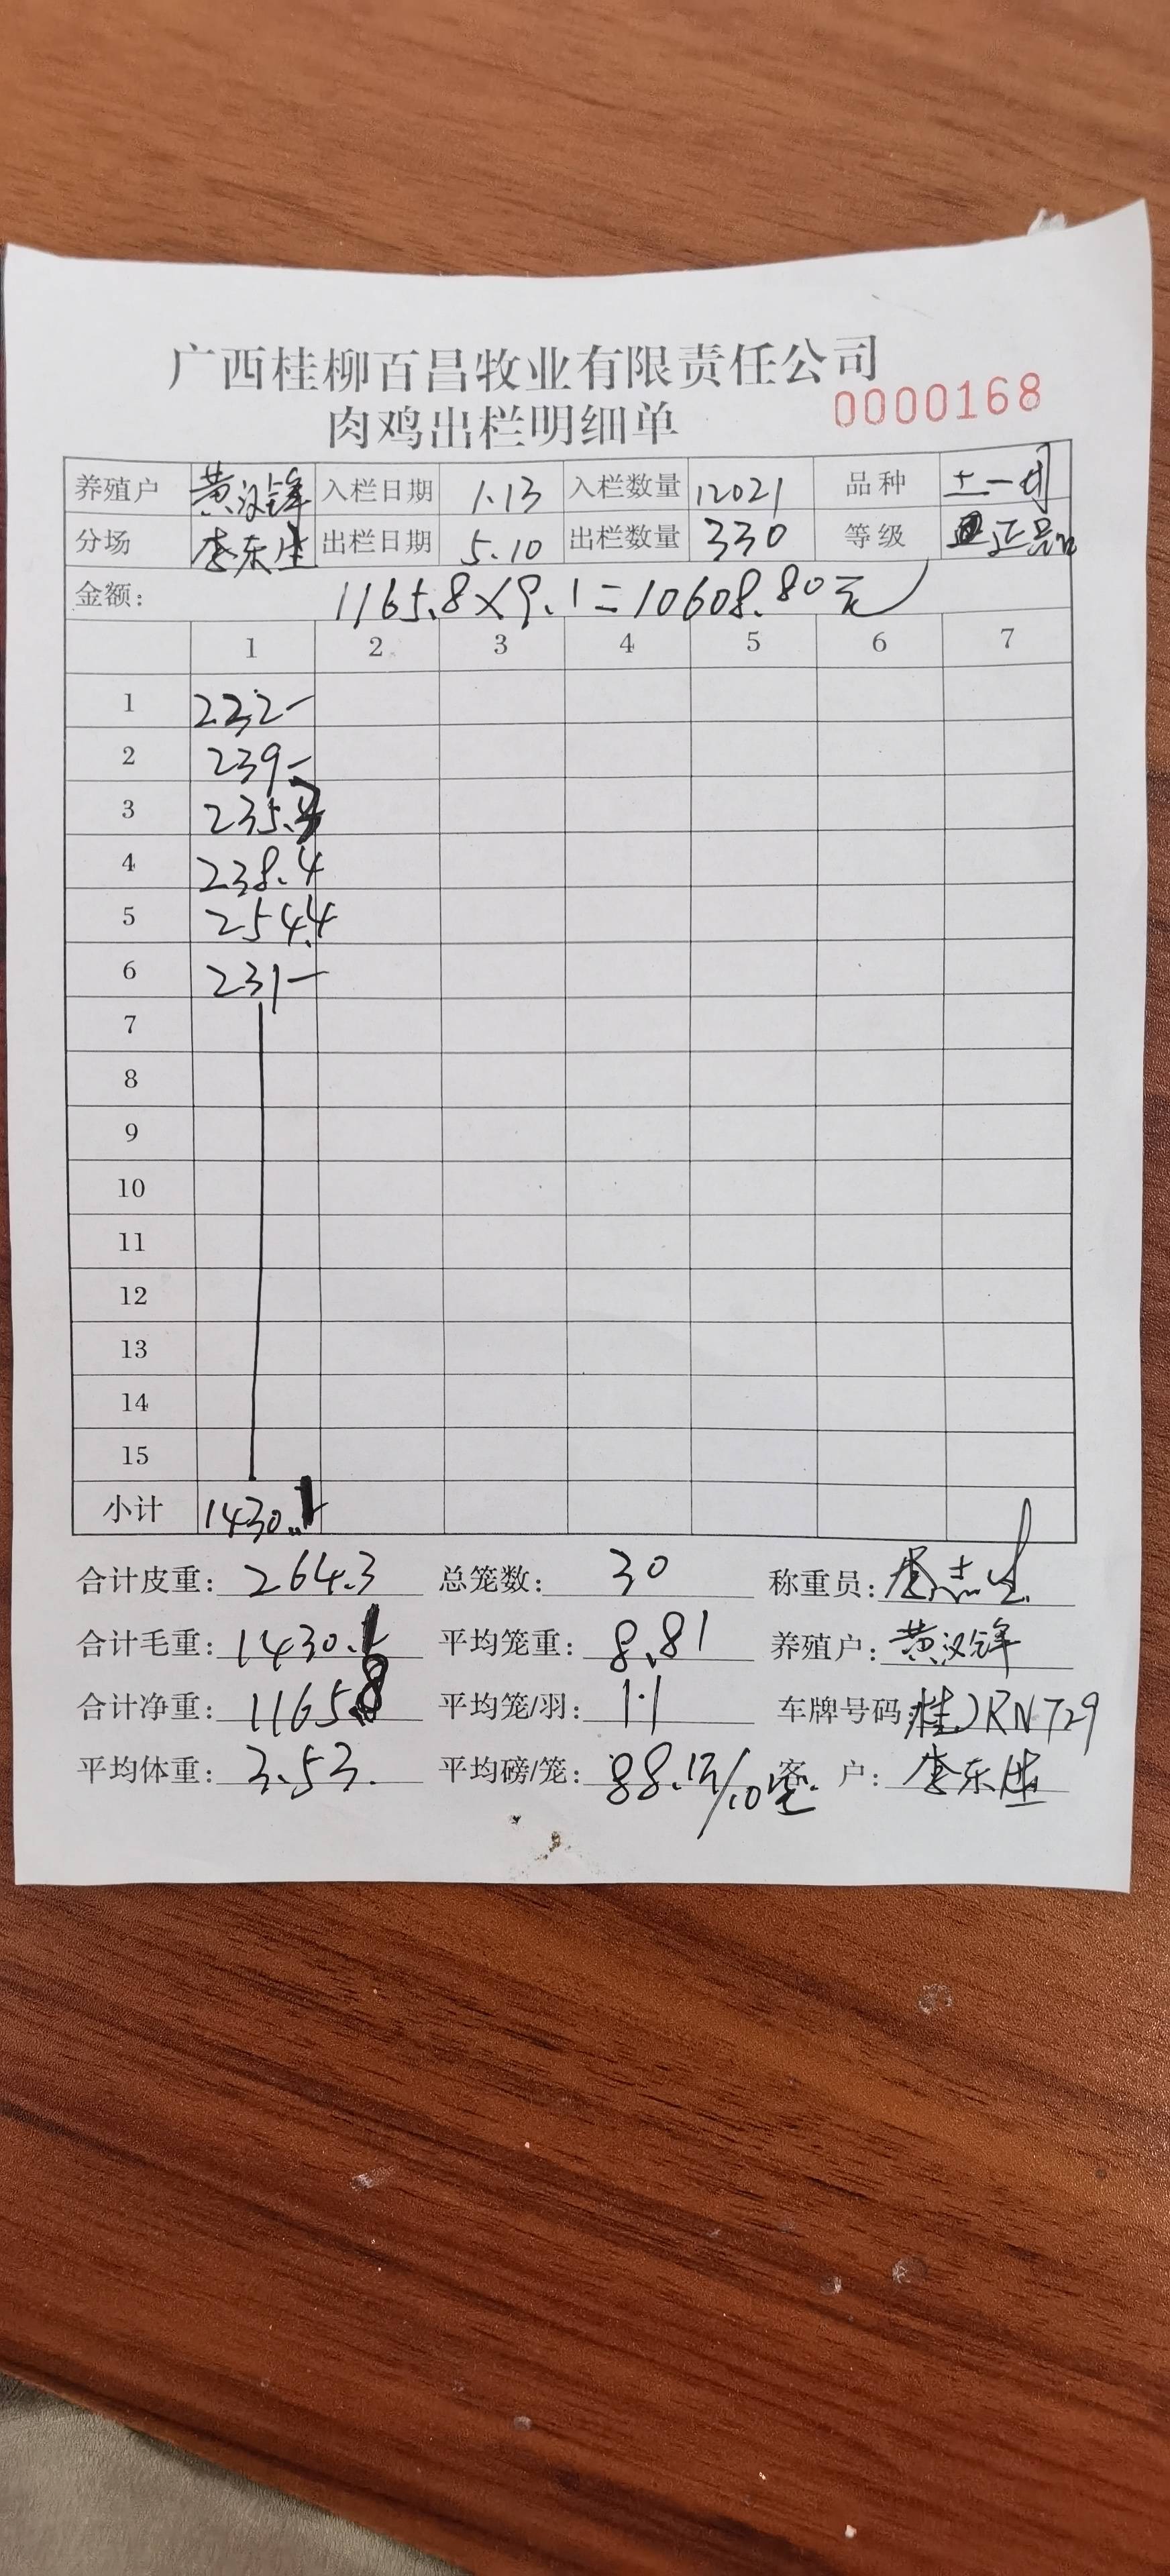 广西桂柳百昌牧业有限责任公司
肉鸡出栏明细单 0000168
养殖户 黄汉锋 入栏日期 1.13 入栏数量 12021 品种 土一
分场 李东生 出栏日期 5.10 出栏数量 330 等级 正品
金额: 1165.8×9.1=10608.80元
1 2 3 4 5 6 7
1 232-
2 239-
3 235.3
4 238.4
5 254.4
6 231-
7
8
9
10
11
12
13
14
15
小计 1430.1
合计皮重: 264.3 总笼数: 30 称重员:
合计毛重: 1430.1 平均笼重: 8.81 养殖户: 黄汉锋
合计净重: 1165.8 平均笼/羽: 11 车牌号码: 桂JRN729
平均体重: 3.53. 平均磅/笼: 88.1/10 客户: 李东生